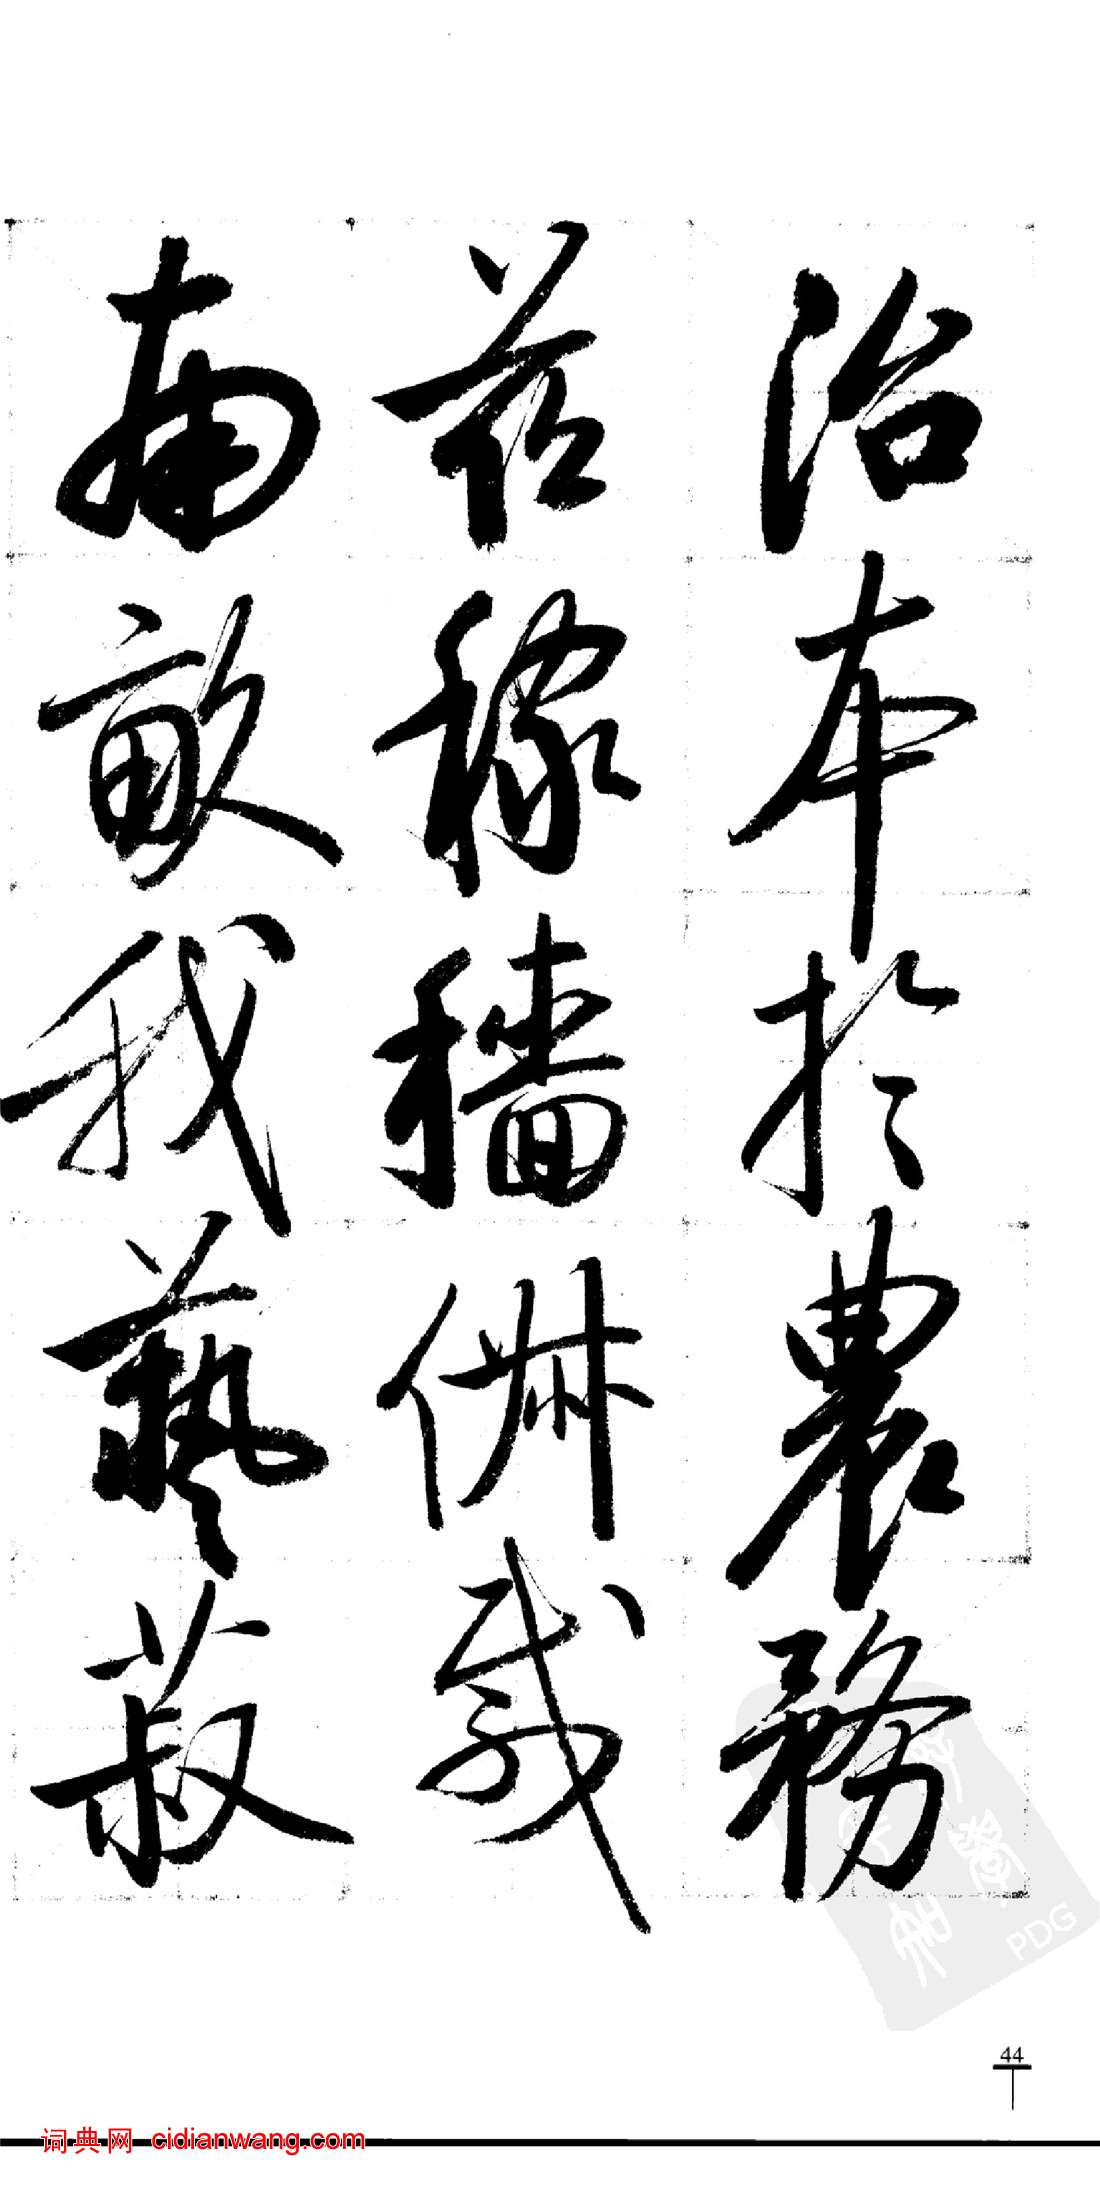 治本於農務
茲稼穡俶載
南畝我藝菽
PDG
44
词典网 cidianwang.com